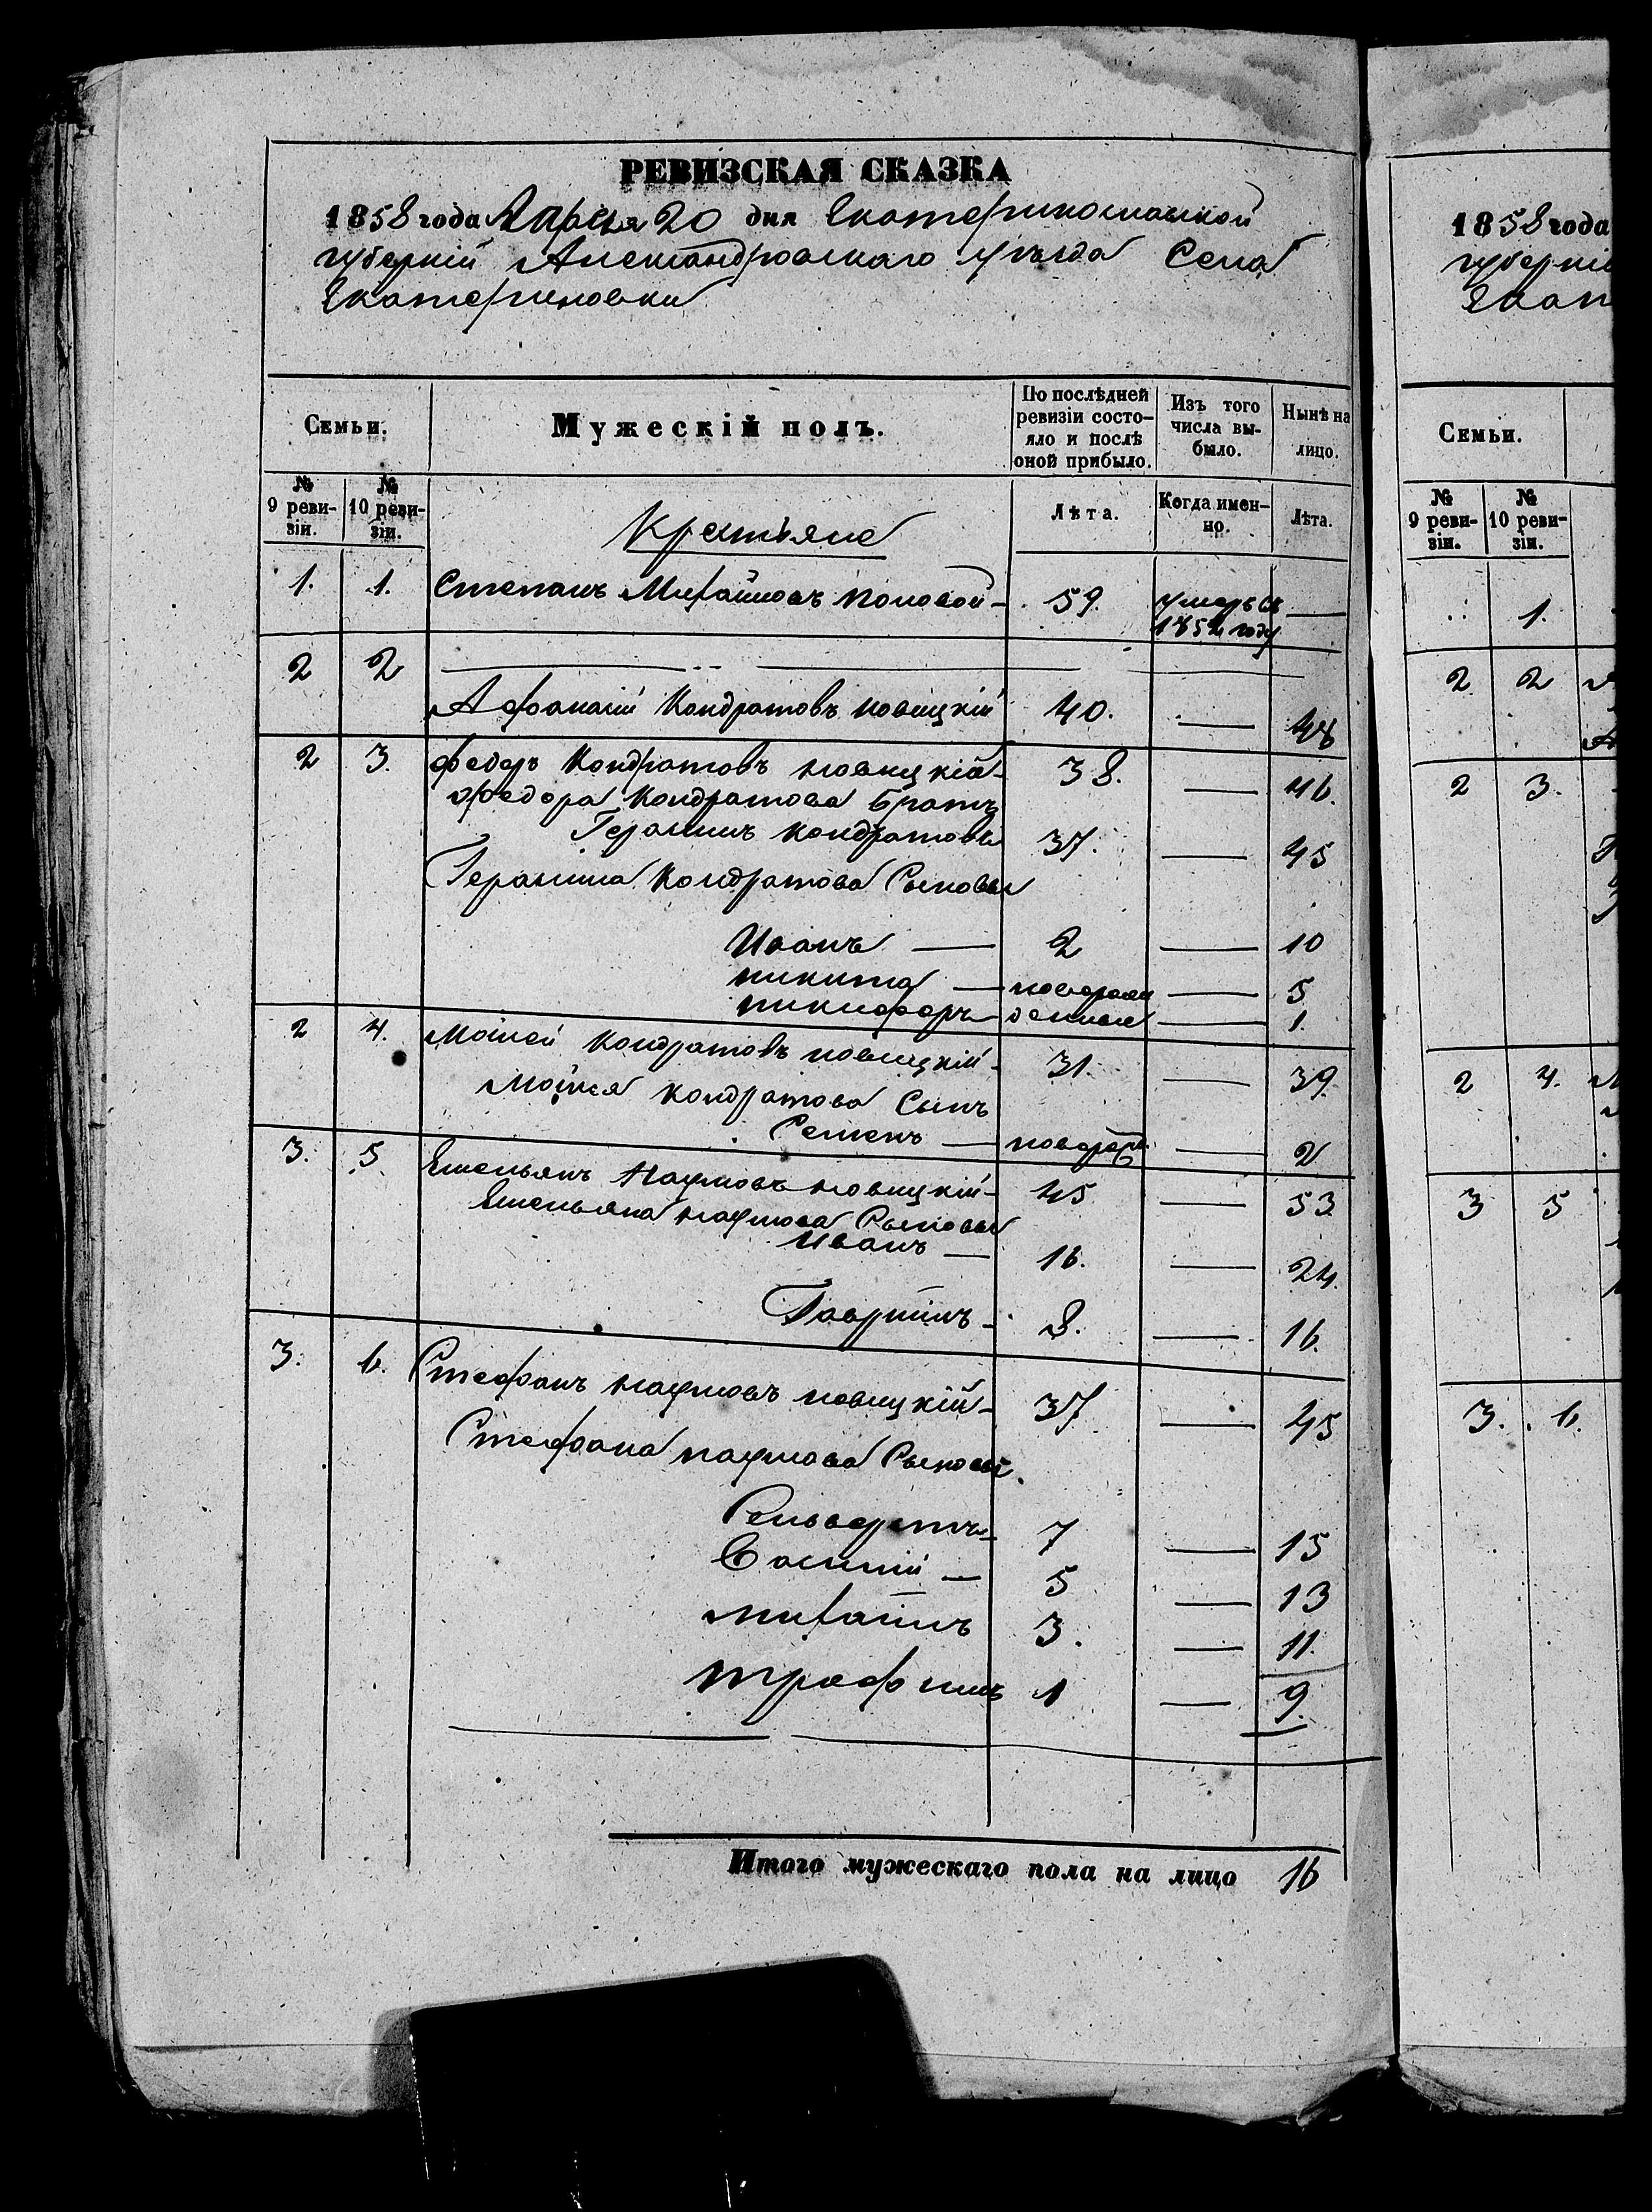 РЕВИЗСКАЯ СКАЗКА
1858 года Апреля 20 дня Екатеринославской
губерній Александровскаго уезда Села
Екатериновки
Семьи.
Мужескій полъ.
По послѣдней ревизіи состо-
яло и послѣ
оной прибыло.
Изъ того
числа вы-
было.
Нынѣ на
лицо.
№
9 реви-
зіи.
№
10 реви-
зіи.
Крестьяне
Лѣта.
Когда имен-
но.
Лѣта.
1. 1. Степанъ Михайловъ 59. умеръ въ
1852 году
2 2
Афанасій Кондратовъ новицкій 40. — 48
2 3. Федоръ Кондратовъ новицкій 38. — 46.
Федора Кондратова братъ
Герасимъ Кондратовъ 37. — 45
Герасима Кондратова Сыновья
Иванъ — 2 — 10
никита — новорож — 5
никифоръ — денные — 1.
2 4. Мойсей Кондратовъ новицкій 31. — 39.
Мойсея Кондратова Сынъ
Семенъ — новорож — 2
3. 5. Емельянъ Наумовъ новицкій 45 — 53
Емельяна наумова Сыновья
Иванъ — 16. — 24.
Гаврiилъ 8. — 16.
3. 6. Стефанъ наумовъ новицкій 37 — 45
Стефана наумова Сыновья
Сельвестръ 7 — 15
Василій — 5 — 13
михайлъ 3. — 11.
трофимъ 1 — 9.
Итого мужескаго пола на лицо 16
1858 года
губерній
Екат
Семьи.
№
9 реви-
зіи.
№
10 реви-
зіи.
1.
2 2
2 3.
2 4.
3 5
3. 6.